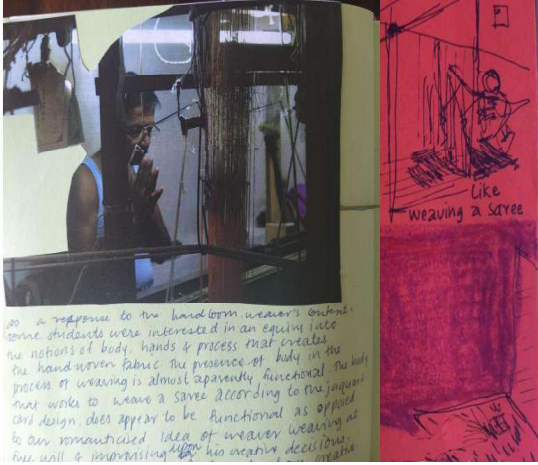 as a response to the handloom weaver's context,
some students were interested in an equiry into
the notions of body, hands & process that creates
the hand woven fabric The presence of body in the
process of weaving is almost aparently functional The body
that works to weave a saree according to the jaquard
card design, does appear to be functional as opposed
to our romanticised idea of weaver weaving at
free will & improvising upon his creative decisions.
creative
Like
weaving a saree